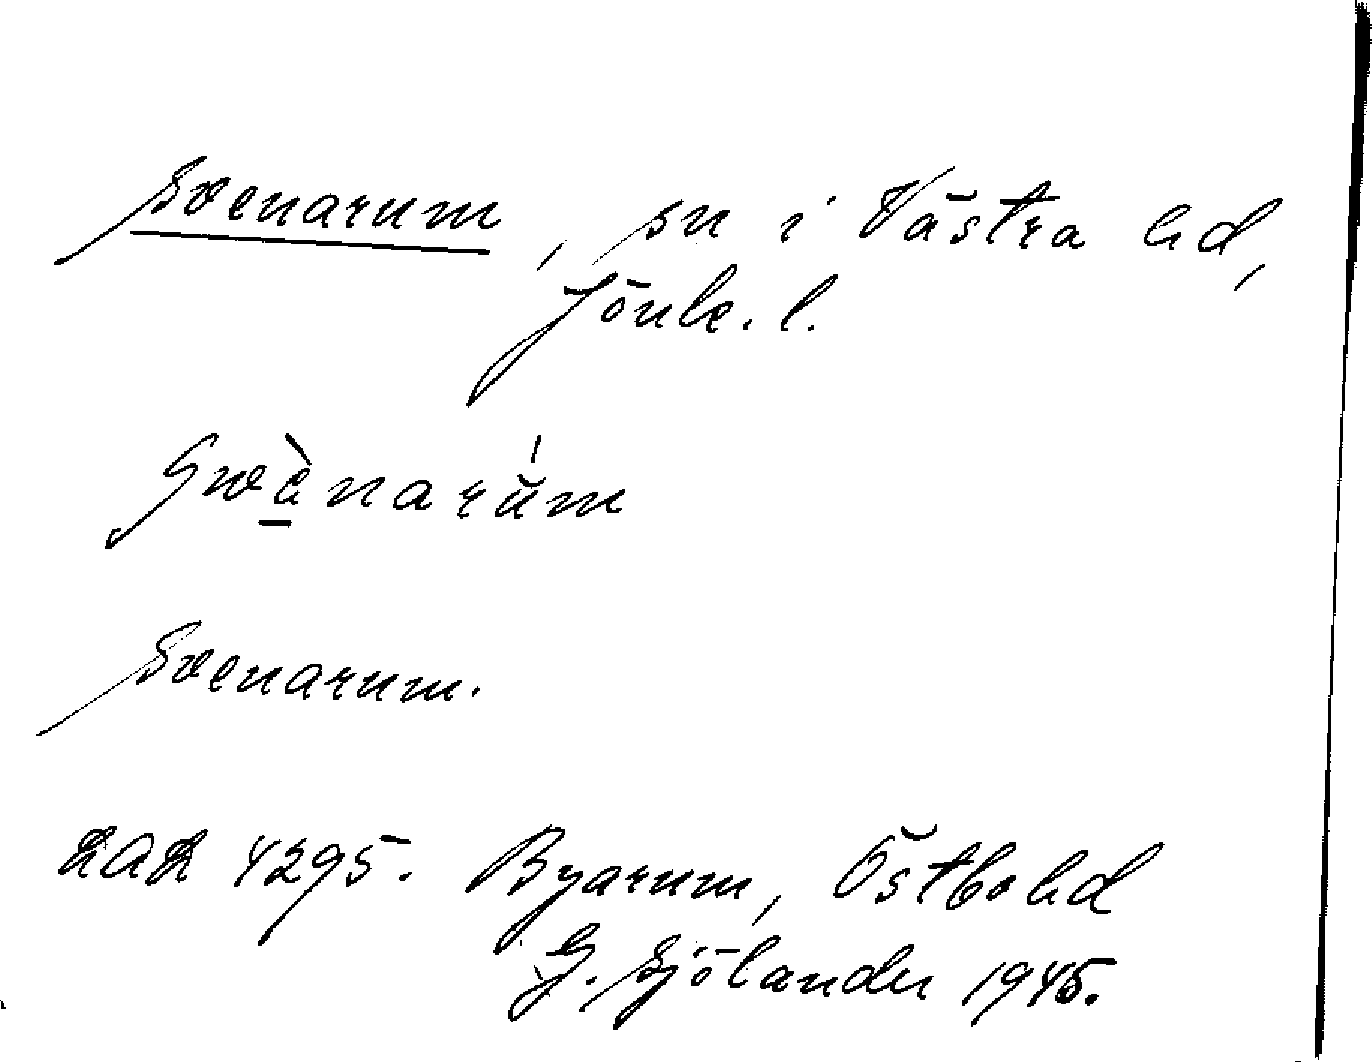 Svenarum, sn i Västra hd,
Jönk. l.
Svènarúm
Svenarum.
LAL 4295. Byarum, Östbo hd
G. Sjölander 1945.